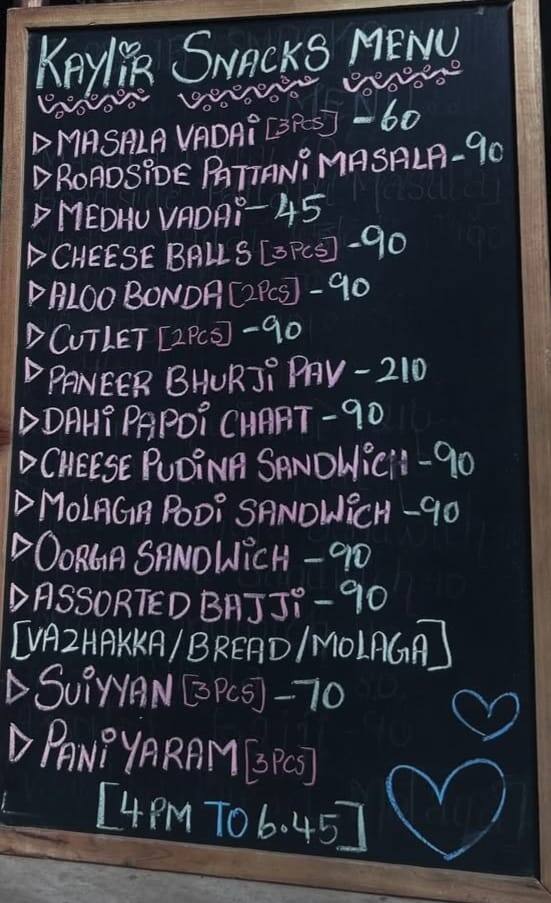 KAYLIR SNACKS MENU
MASALA VADAI [3PCS] -60
ROADSIDE PATTANI MASALA-90
MEDHU VADAI-45
CHEESE BALLS [3PCS] -90
ALOO BONDA [2PCS] -90
CUTLET [2PCS] -90
PANEER BHURJI PAV -210
DAHI PAPDI CHAAT -90
CHEESE PUDINA SANDWICH -90
MOLAGA PODI SANDWICH -90
OORGA SANDWICH -90
ASSORTED BAJJI -90
[VAZHAKKA/BREAD/MOLAGA]
SUIYYAN [3PCS] -70
PANIYARAM [3PCS]
[4PM TO 6.45]